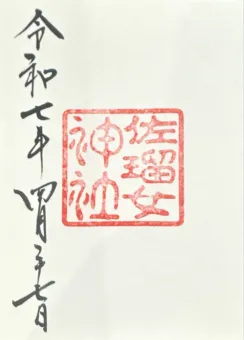 佐瑠女
神社
令和七年四月二十七日